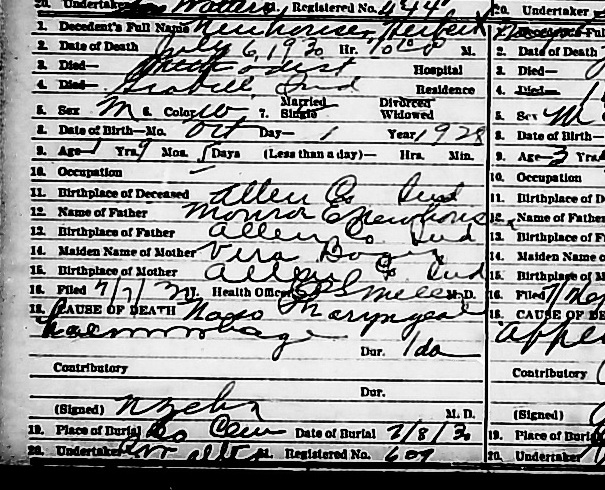 20. Undertaker Walters 21. Registered No. 444 20. Undertaker
1. Decedent's Full Name Neuhouser, Herbert
2. Date of Death July 6, 1930 Hr. M. 2. Date of Death
3. Died— Methodist Hospital 3. Died—
4. Died— Grabill, Ind Residence 4. Died—
5. Sex M 6. Color W 7. Married Single Divorced Widowed 5. Sex M
8. Date of Birth—Mo. Oct Day— 1 Year 1928 8. Date of Birth—
9. Age— 1 Yrs. 9 Mos. 5 Days (Less than a day)— Hrs. Min. 9. Age— 3 Yrs.
10. Occupation — 10. Occupation
11. Birthplace of Deceased Allen Co. Ind 11. Birthplace of D
12. Name of Father Monroe E Neuhouser 12. Name of Father
13. Birthplace of Father Allen Co. Ind 13. Birthplace of F
14. Maiden Name of Mother Vera 14. Maiden Name
15. Birthplace of Mother Allen Co. Ind 15. Birthplace of M
16. Filed 7/7/30 17. Health Officer Miller M. D. 16. Filed
18. CAUSE OF DEATH Naso Pharyngeal 18. CAUSE OF DE
haemmorhage
Dur. 1 da
Contributory Contributory
Dur.
(Signed) M. D. (Signed)
19. Place of Burial Cem Date of Burial 7/8/30 19. Place of Burial
20. Undertaker Walters 21. Registered No. 609 20. Undertaker